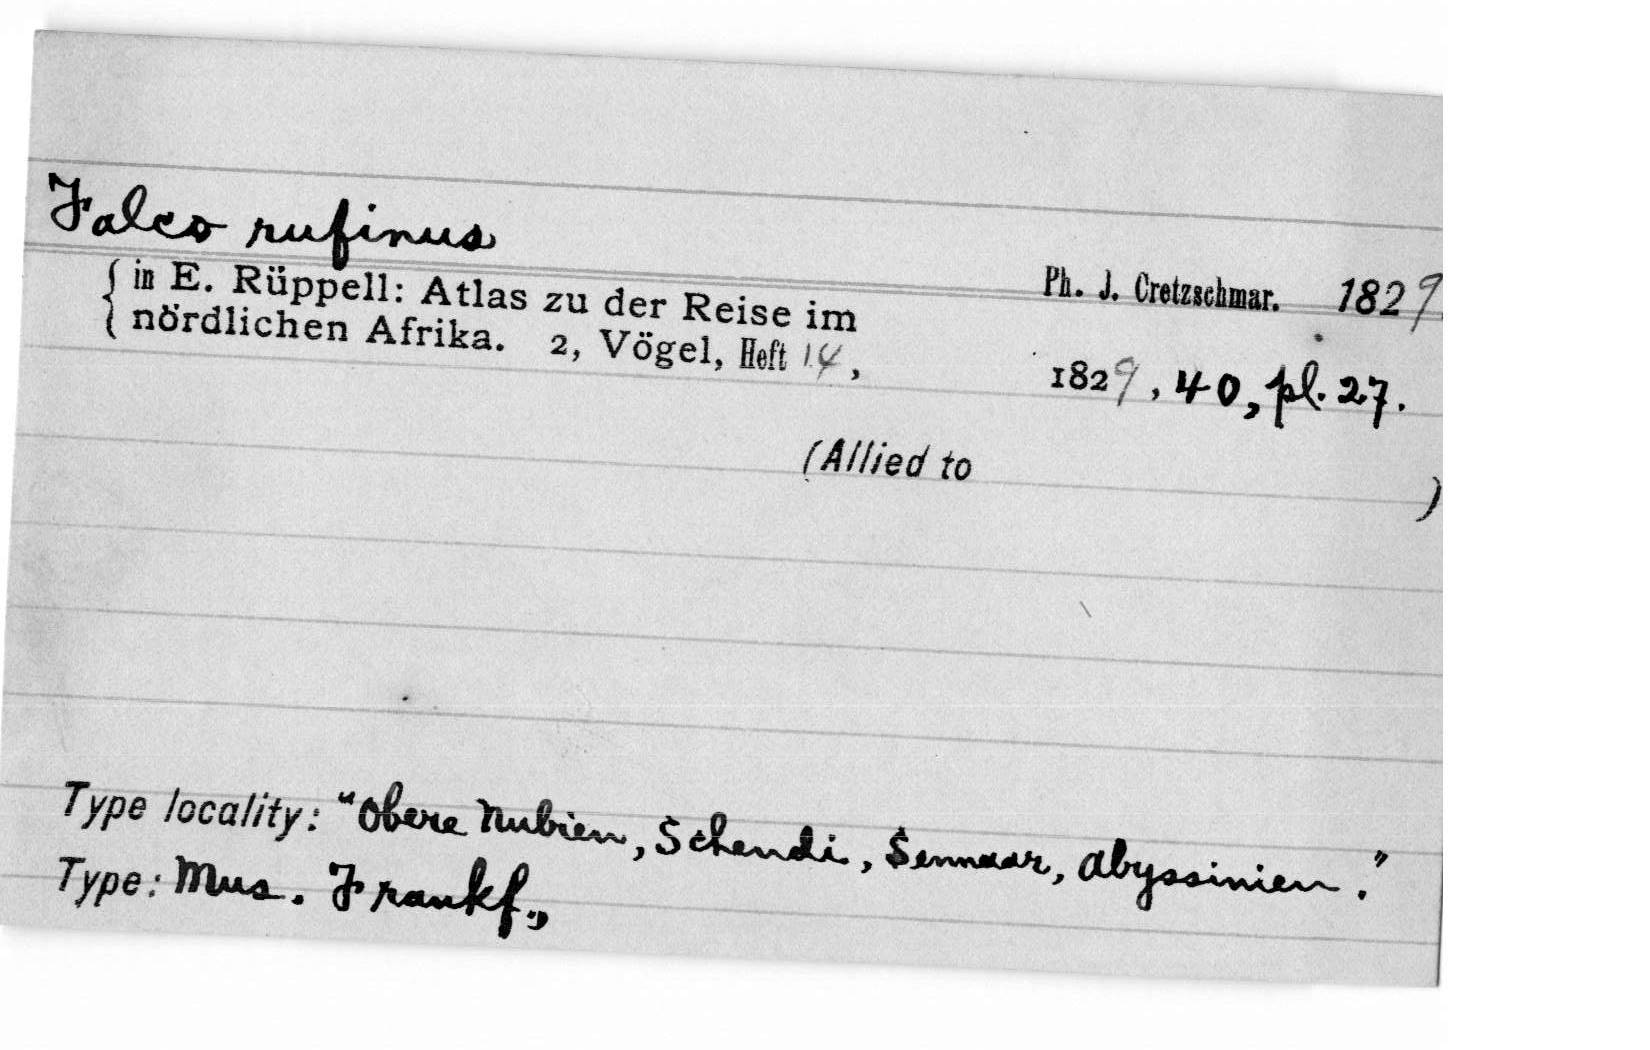 Falco rufinus
Ph. J. Cretzschmar. 1829.
{ in E. Rüppell: Atlas zu der Reise im
nördlichen Afrika. 2, Vögel, Heft 14,
1829, 40, pl. 27.
(Allied to )
Type locality: "Obere Nubien, Schendi, Sennaar, Abyssinien."
Type: Mus. Frankf.,